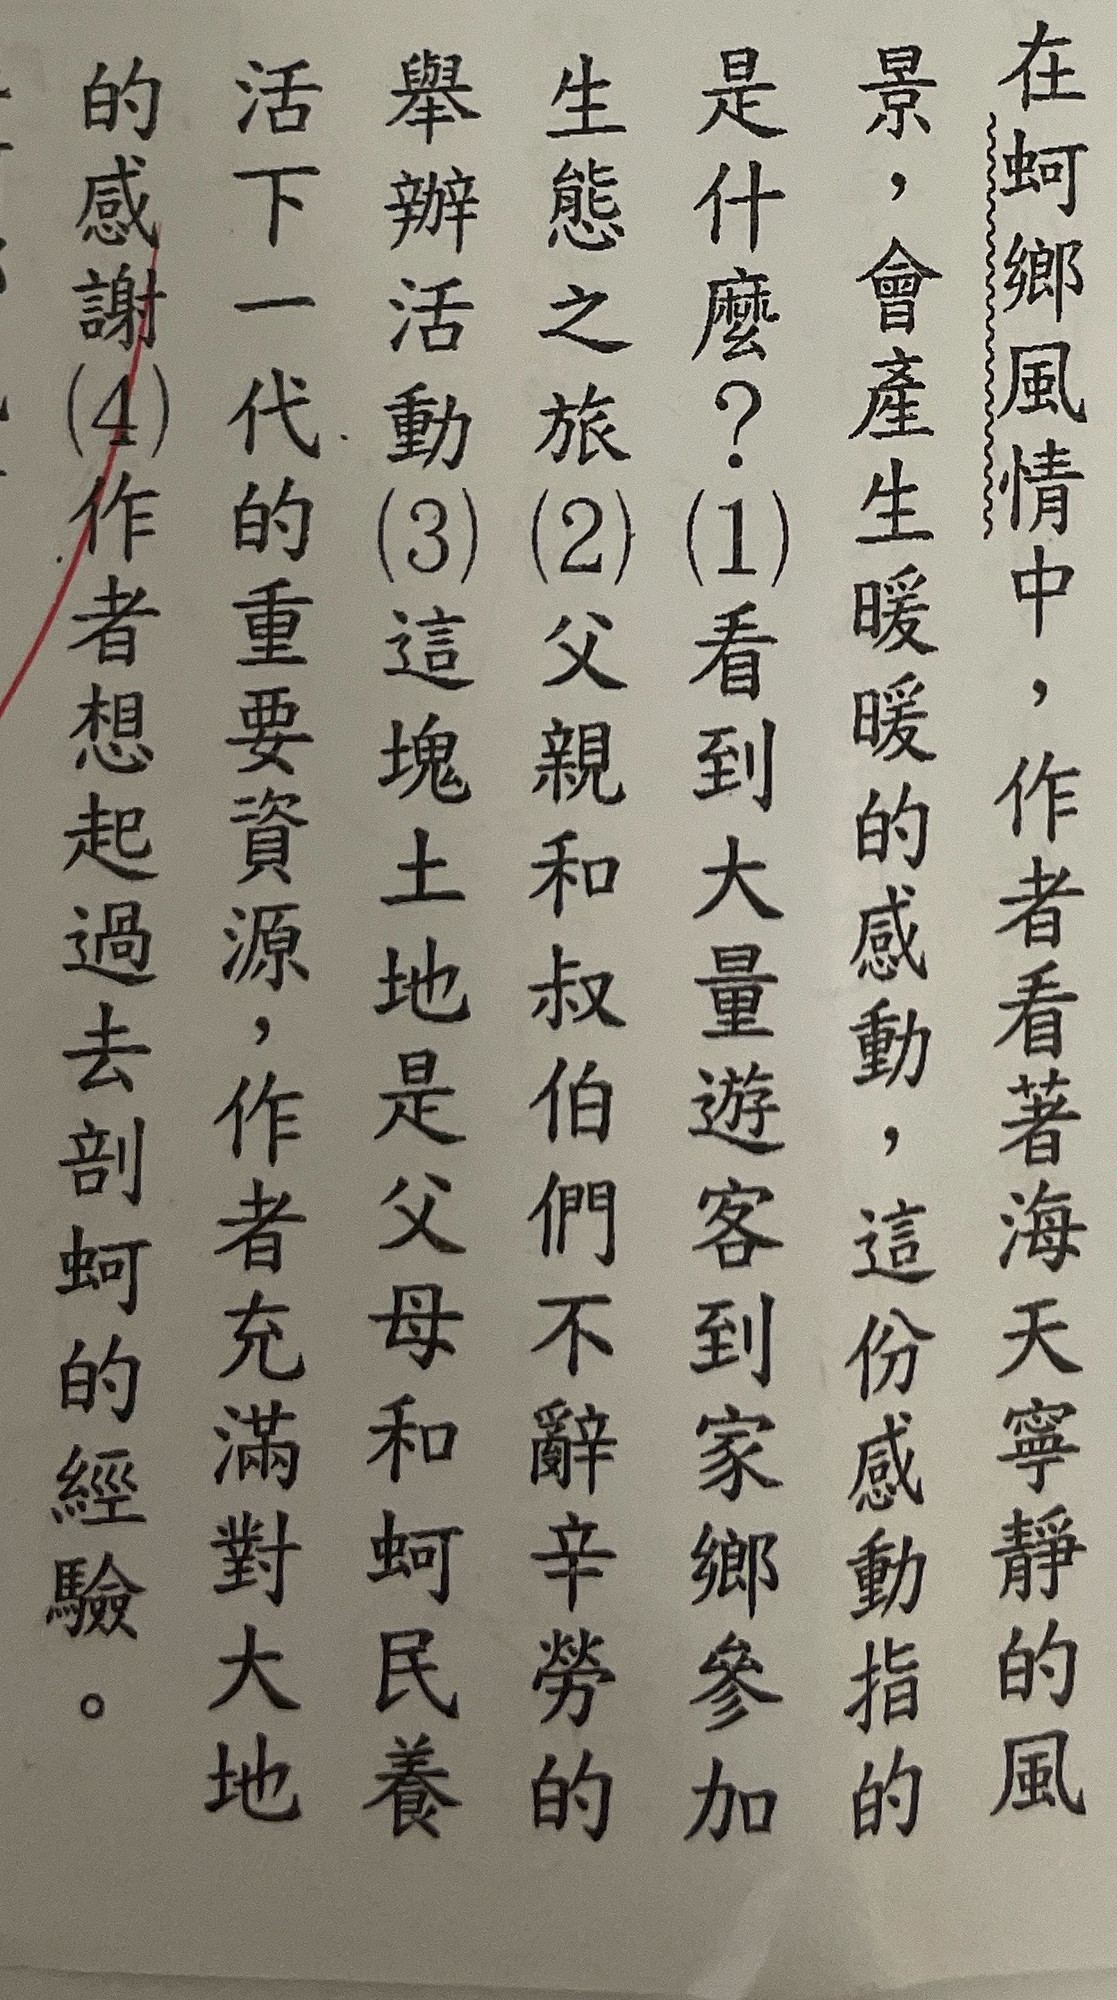 在蚵鄉風情中，作者看著海天寧靜的風
景，會產生暖暖的感動，這份感動指的
是什麼？(1)看到大量遊客到家鄉參加
生態之旅(2)父親和叔伯們不辭辛勞的
舉辦活動(3)這塊土地是父母和蚵民養
活下一代的重要資源，作者充滿對大地
的感謝(4)作者想起過去剖蚵的經驗。